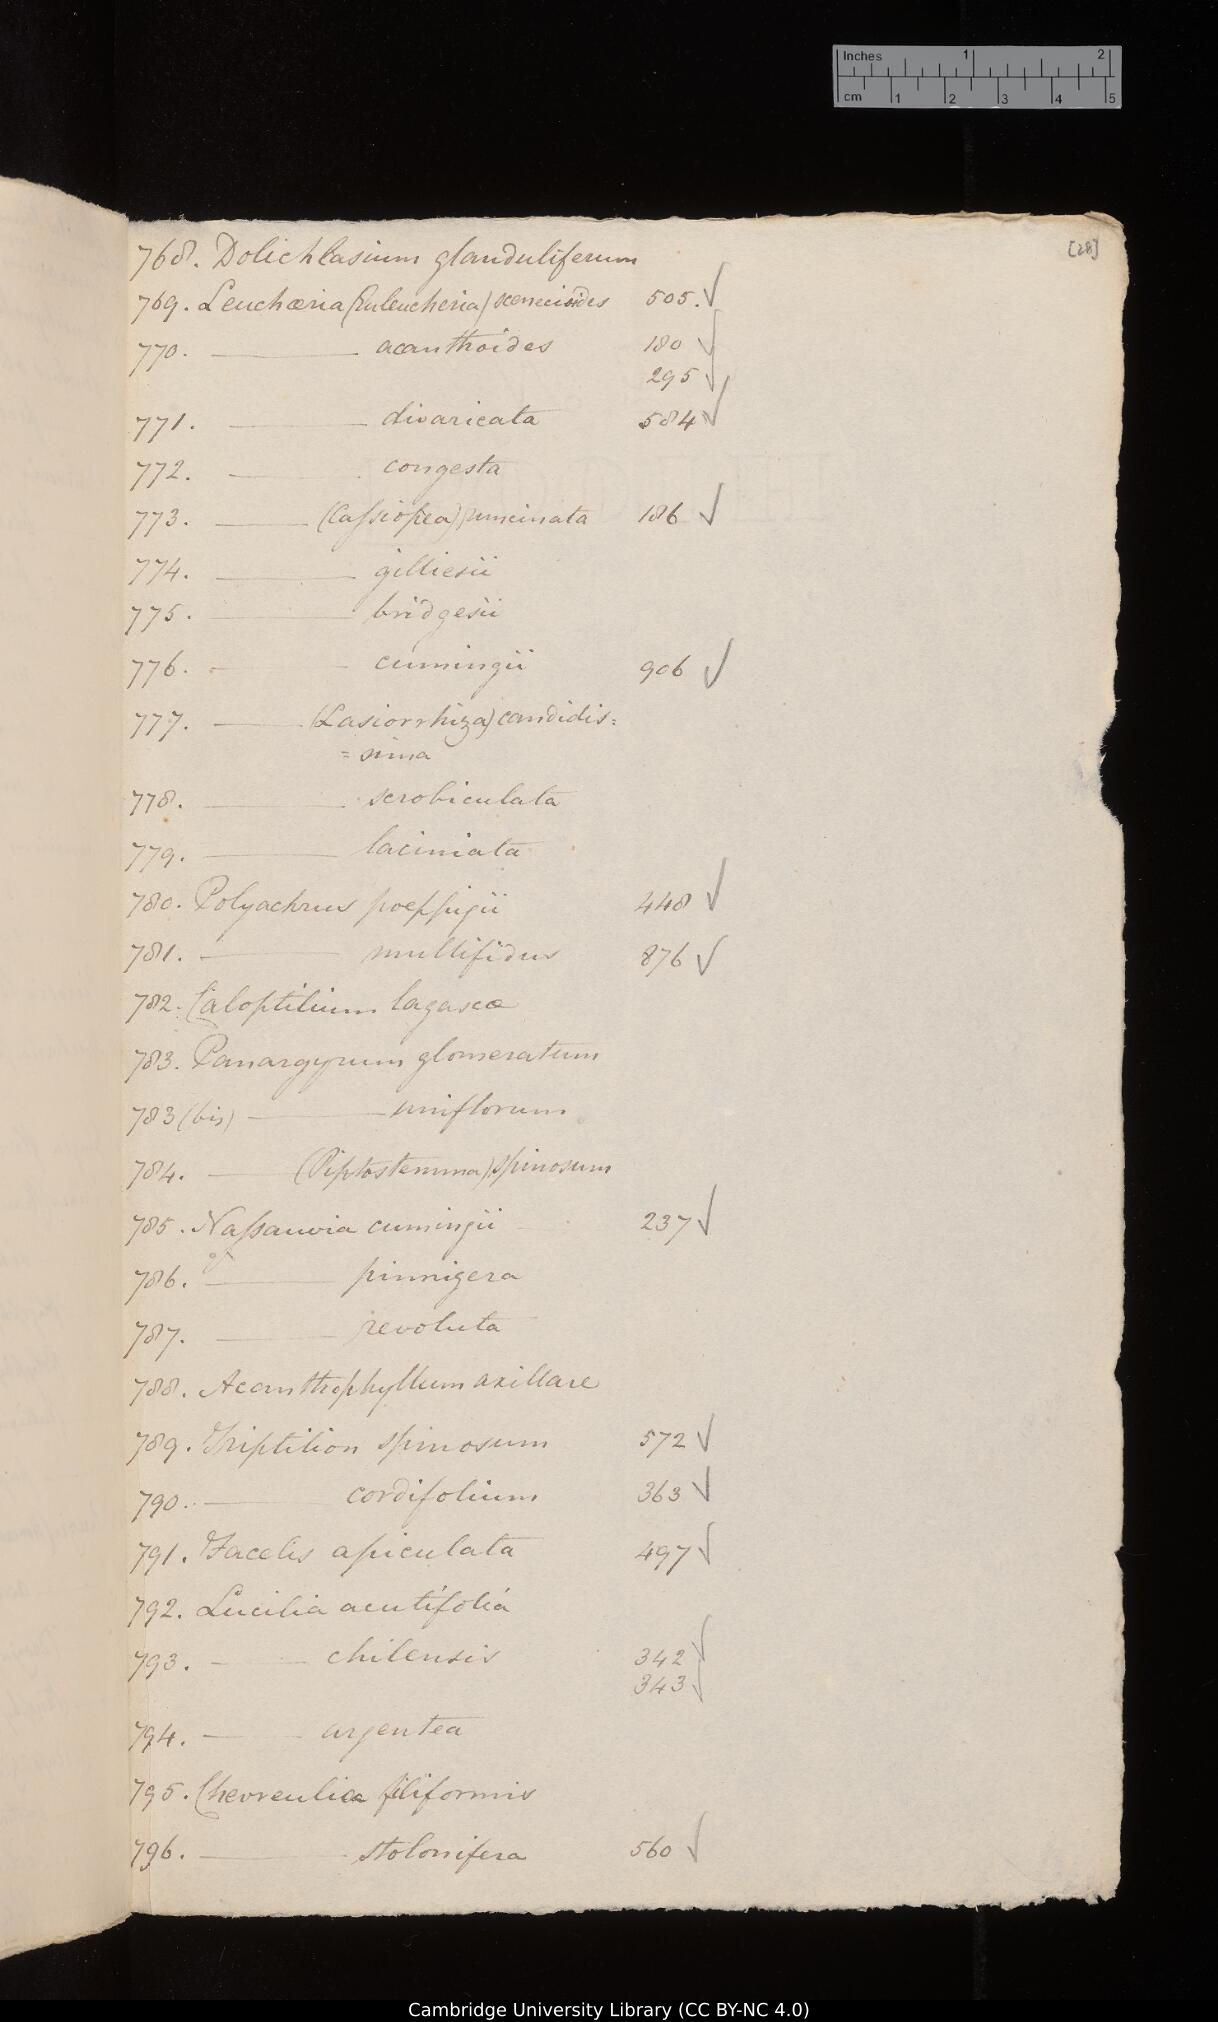 Inches 1 2
cm 1 2 3 4 5
[28]
768. Dolichlasium glanduliferum
769. Leuchæria (Euleucheria) senecioides 505. ✓
770. ——— acanthoides 180 ✓
295 ✓
771. ——— divaricata 584 ✓
772. ——— congesta
773. ——— (Cassiopea) runcinata 186 ✓
774. ——— gilliesii
775. ——— bridgesii
776. ——— cumingii 906 ✓
777. ——— (Lasiorrhiza) candidis=
=sima
778. ——— scrobiculata
779. ——— laciniata
780. Polyachrus poeppigii 448 ✓
781. ——— multifidus 876 ✓
782. Caloptilium lagascæ
783. Panargyrum glomeratum
783 (bis) ——— uniflorum
784. ——— (Piptostemma) spinosum
785. Nassauvia cumingii 237 ✓
786. ——— pinnigera
787. ——— revoluta
788. Acanthophyllum axillare
789. Triptilion spinosum 572 ✓
790. ——— cordifolium 363 ✓
791. Facelis apiculata 497 ✓
792. Lucilia acutifolia
793. ——— chilensis 342 ✓
343 ✓
794. ——— argentea
795. Chevreulia filiformis
796. ——— stolonifera 560 ✓
Cambridge University Library (CC BY-NC 4.0)